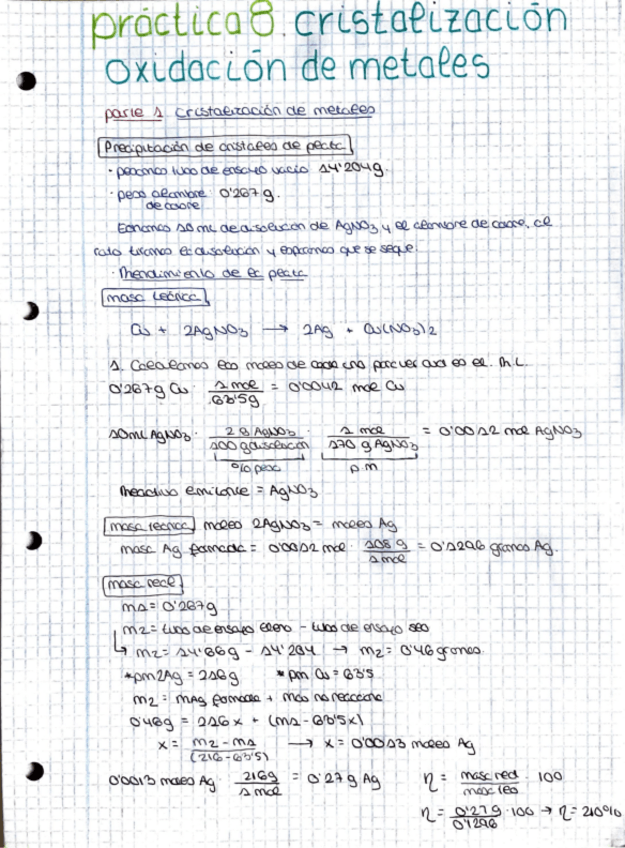 práctica 8. cristalización
oxidación de metales
parte 1 cristalización de metales
Precipitación de cristales de plata
· pesamos tubo de ensayo vacío 14'204g.
· peso alambre 0'267g.
de cobre
Echamos 10 mL de disolución de AgNO3 y el alambre de cobre, al
rato tiramos la disolución y esperamos que se seque.
· Rendimiento de la plata
masa teórica
Cu + 2AgNO3 → 2Ag + Cu(NO3)2
1. Calculamos los moles de cada uno para ver cual es el R.L.
0'267g Cu · 1 mol / 63'5g = 0'0042 mol Cu
10mL AgNO3 · 2 g AgNO3 / 100 g disolución · 1 mol / 170 g AgNO3 = 0'0012 mol AgNO3
% peso p.m
Reactivo limitante = AgNO3
masa teórica moles 2AgNO3 = moles Ag
masa Ag formada = 0'0012 mol · 108 g / 1 mol = 0'1296 gramos Ag.
masa real
m1 = 0'267g
m2 = tubo de ensayo lleno - tubo de ensayo seo
↳ m2 = 14'66g - 14'204 → m2 = 0'46 gramos.
*pm 2Ag = 216g *pm Cu = 63'5
m2 = mAg formada + mCu no reacciona
0'46g = 216x + (m1 - 63'5x)
x = m2 - m1 / (216 - 63'5) → x = 0'0013 moles Ag
0'0013 moles Ag · 216g / 1 mol = 0'27g Ag η = masa real / masa teo · 100
η = 0'27g / 0'1296 · 100 → η = 210%